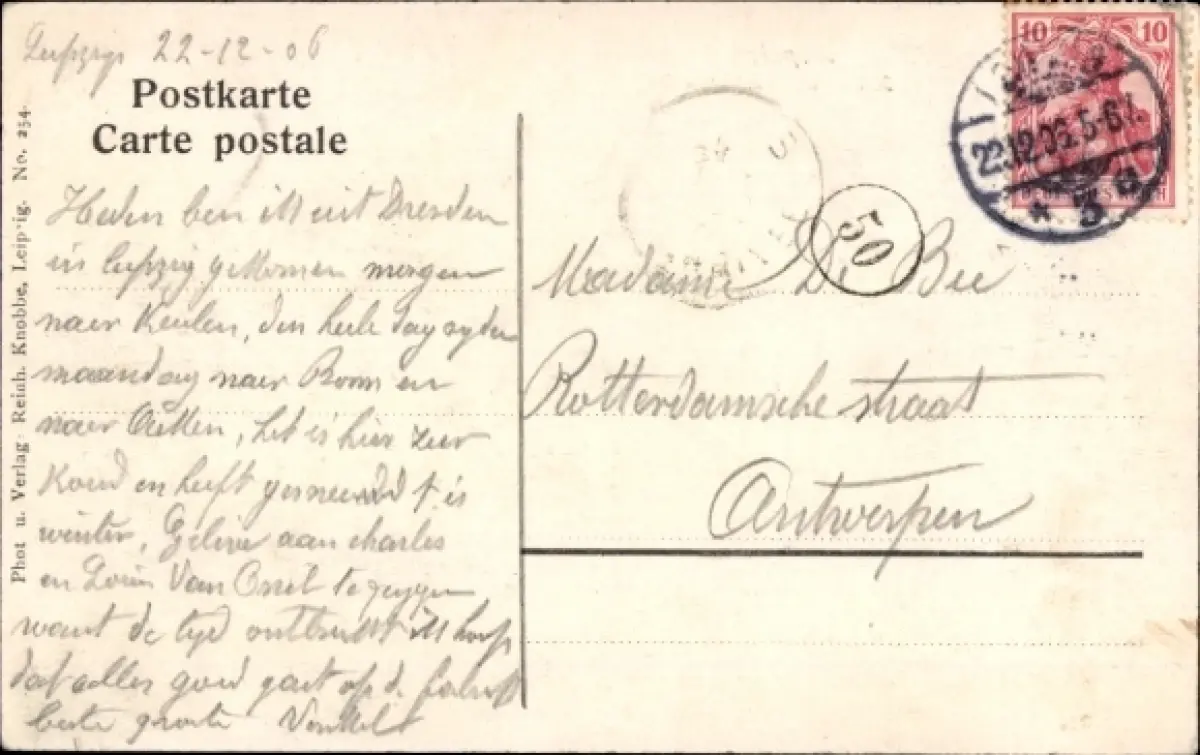 Leipzig 22-12-06
Postkarte
Carte postale
Heden ben ik uit Dresden
in Leipzig gekomen morgen
naer Keulen, den heele dag ryden
maandag naer Bonn en
naer, het is hier zeer
Koud en heeft gesneeuwd t is
winter, Gelieve aan charles
en Louis Van te zeggen
want de tyd ontbreekt ik hoop
dat alles goed gaat op de
beste groete
Phot u. Verlag Reinh. Knobbe, Leipzig. No. 254
10 10
22.12.06. 5-6
* 3 a
50
Madame De Bee
Rotterdamsche straat
Antwerpen